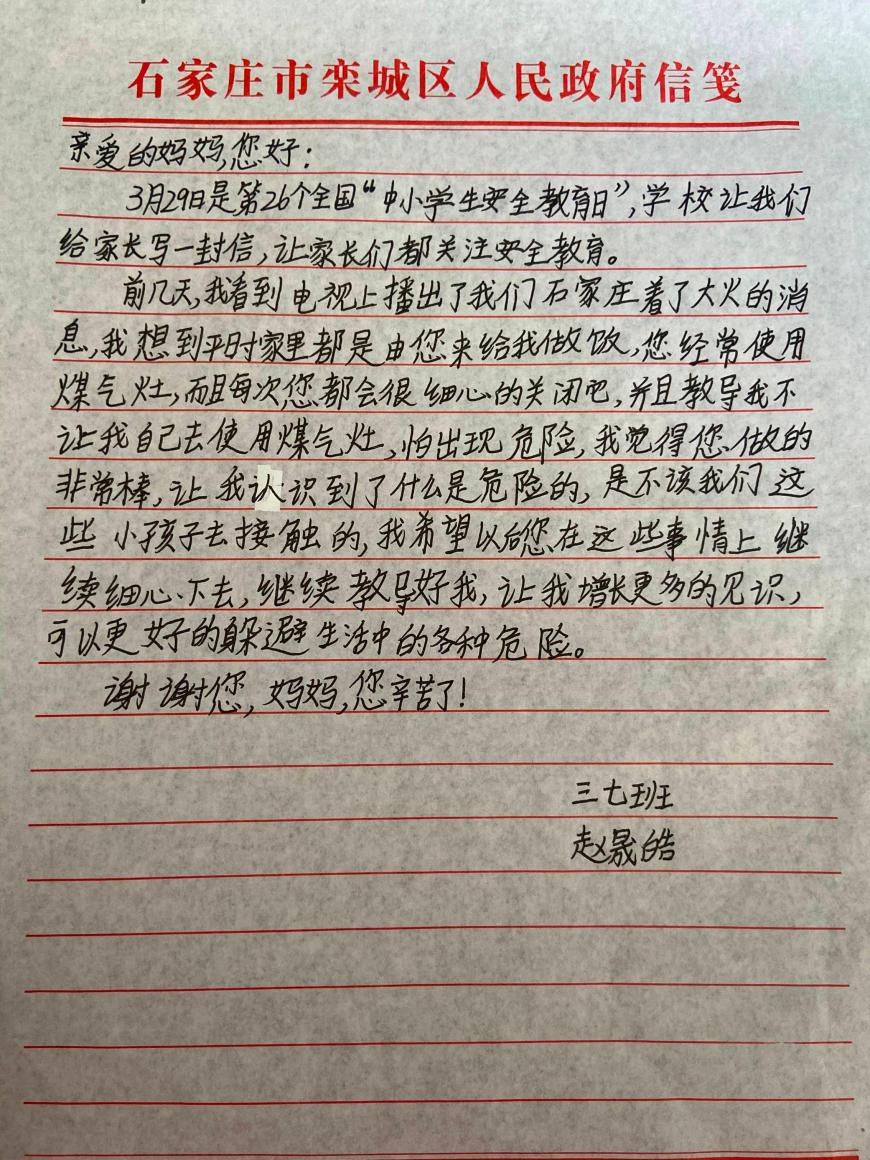 石家庄市栾城区人民政府信笺
亲爱的妈妈,您好:
3月29日是第26个全国“中小学生安全教育日”,学校让我们
给家长写一封信,让家长们都关注安全教育。
前几天,我看到电视上播出了我们石家庄着了大火的消
息,我想到平时家里都是由您来给我做饭,您经常使用
煤气灶,而且每次您都会很细心的关闭吧,并且教导我不
让我自己去使用煤气灶,怕出现危险,我觉得您做的
非常棒,让我认识到了什么是危险的,是不该我们这
些小孩子去接触的,我希望以后您在这些事情上继
续细心下去,继续教导好我,让我增长更多的见识,
可以更好的躲避生活中的各种危险。
谢谢您,妈妈,您辛苦了!
三七班
赵晟皓